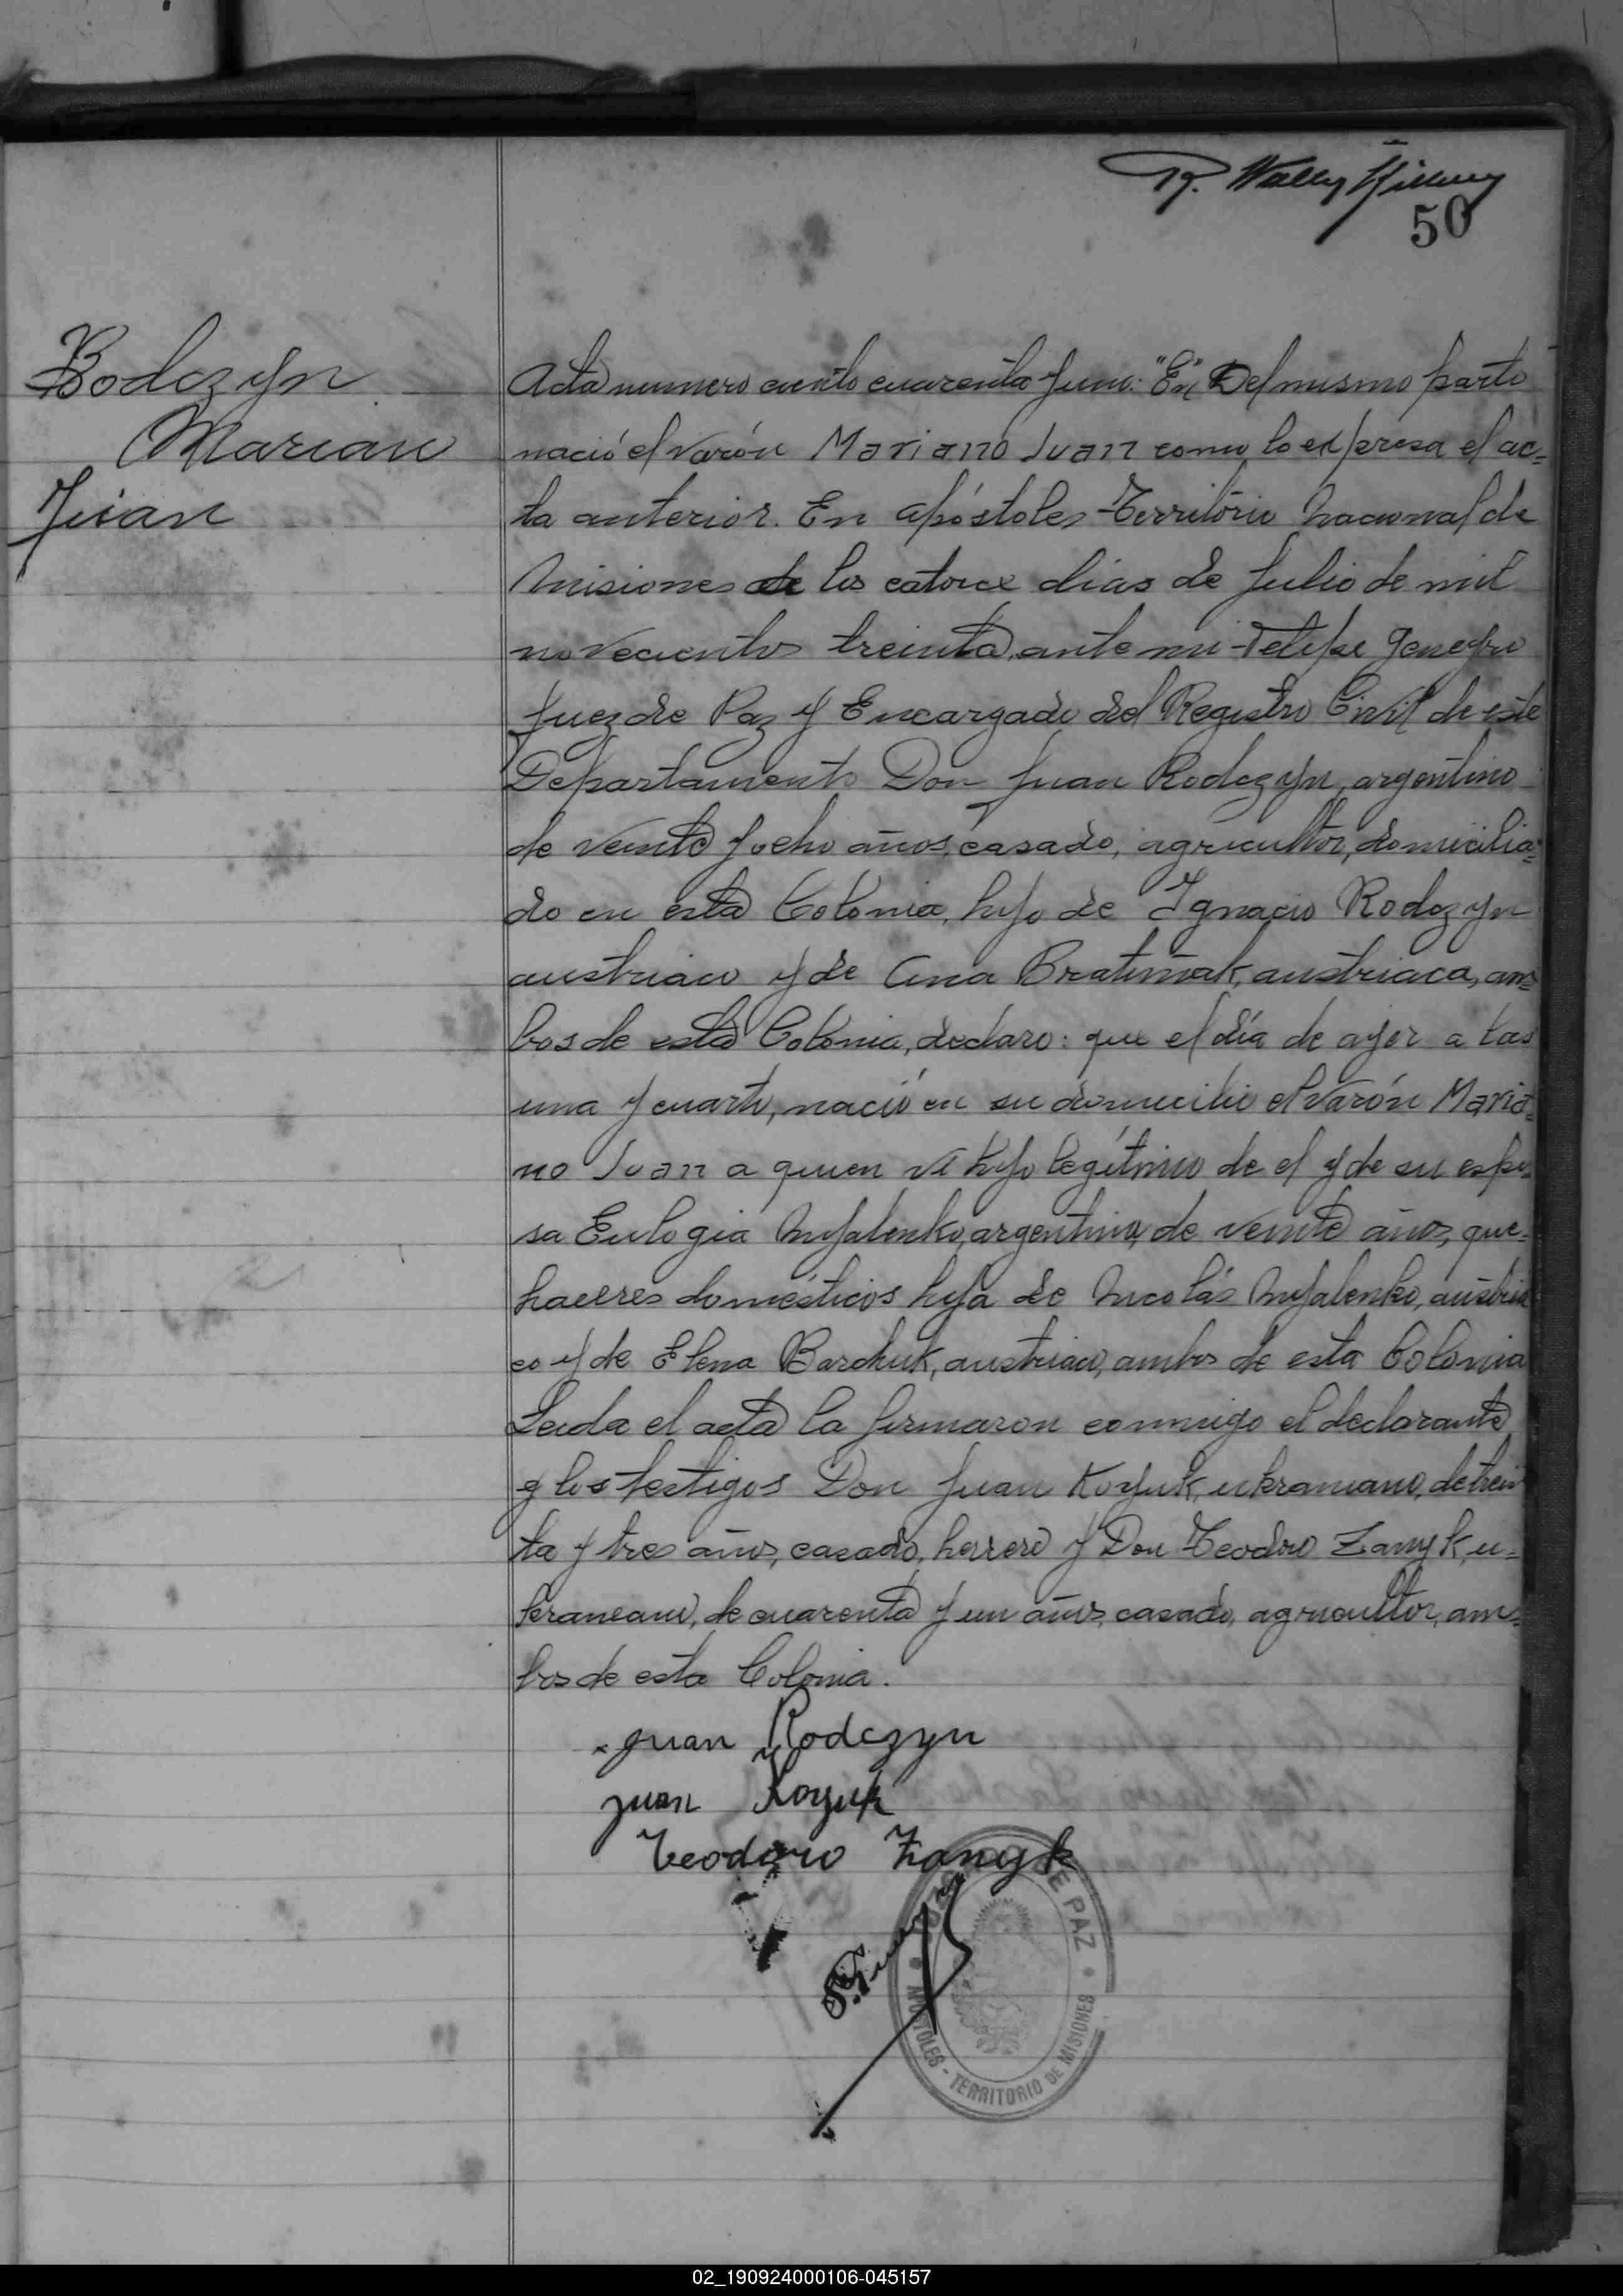 50
Bodczyn
Marian
Juan
Acta numero ciento cuarenta y uno: "En" Del mismo parto
nació el varón Mariano Juan como lo expresa el ac=
ta anterior. En Apóstoles Territorio Nacional de
Misiones de los catorce dias de Julio de mil
novecientos treinta, ante mi Felipe
Juez de Paz y Encargado del Registro Civil de este
Departamento Don Juan Rodczyn, argentino
de veinte y ocho años, casado, agricultor, domicilia=
do en esta Colonia, hijo de Ignacio Rodczyn
austriaco y de Ana austriaca, am=
bos de esta Colonia, declaro: que el día de ayer a las
una y cuarto, nació en su domicilio el varón Maria=
no Juan a quien vi hijo legítimo de el y de su espo=
sa Eulogia Myalenko, argentina, de veinte años, que=
haceres domésticos hija de Nicolás Myalenko, austria
co y de Elena Barchuk, austriaco, ambos de esta Colonia
Leida el acta la firmaron conmigo el declarante
y los testigos Don Juan Koyuk, ukraniano, de trein
ta y tres años, casado, herrero y Don Teodoro Zanyk, u=
kraneano, de cuarenta y un años, casado, agricultor, am=
bos de esta Colonia.
Juan Rodczyn
Juan Koyuk
Teodoro Zanyk
DE PAZ
APOSTOLES - TERRITORIO DE MISIONES
02_190924000106-045157